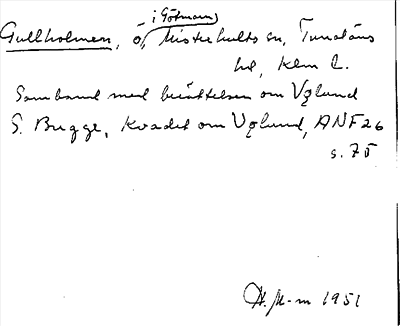 i Götmaren
Gullholmen, ö, Misterhults sn, Tunaläns
hd, Klm l.
Samband med berättelsen om Vǫlund
S. Bugge, Kvadet om Vǫlund, ANF 26
s. 75
1951